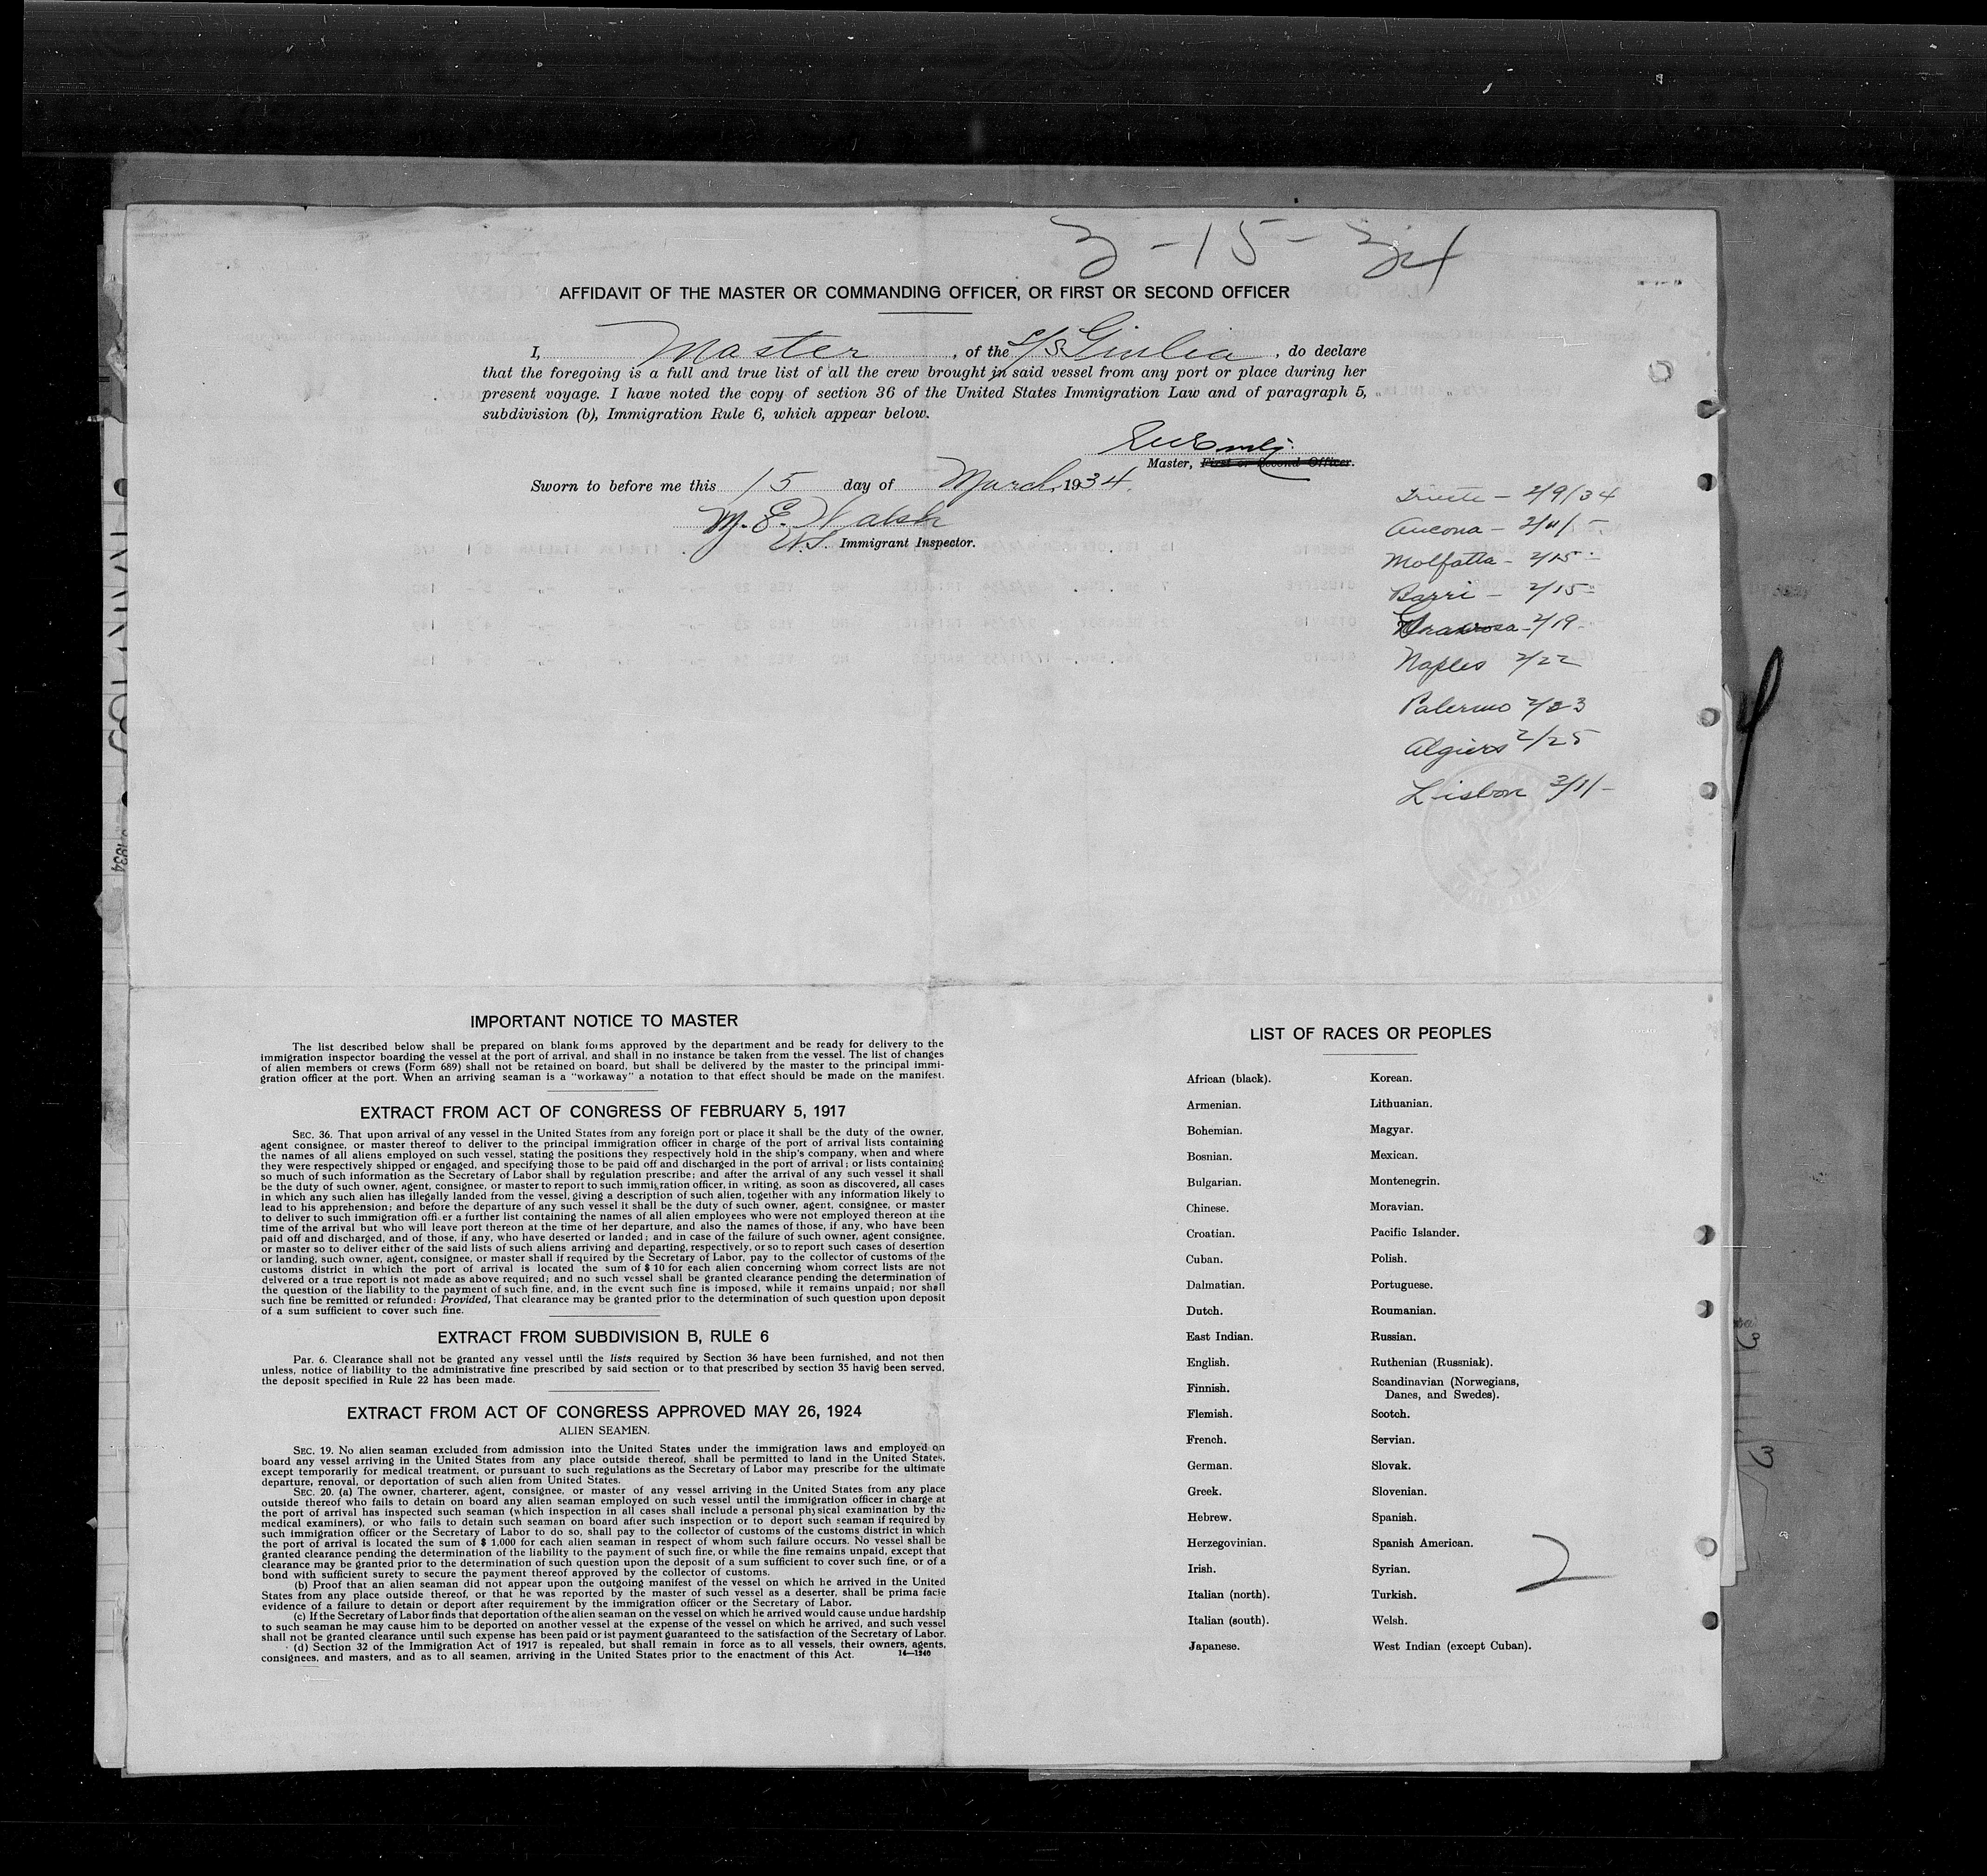 3-15-34
AFFIDAVIT OF THE MASTER OR COMMANDING OFFICER, OR FIRST OR SECOND OFFICER
I, Master, of the S/S Giulia, do declare
that the foregoing is a full and true list of all the crew brought in said vessel from any port or place during her
present voyage. I have noted the copy of section 36 of the United States Immigration Law and of paragraph 5,
subdivision (b), Immigration Rule 6, which appear below.
Master, First or Second Officer.
Sworn to before me this 15 day of March, 1934.
M. E. Walsh
U.S. Immigrant Inspector.
Trieste - 2/9/34
Ancona - 2/11/
Molfatta - 2/15
Barri - 2/15
2/19
Naples 2/22
Palermo 2/23
Algiers 2/25
Lisbon 3/1/-
IMPORTANT NOTICE TO MASTER
The list described below shall be prepared on blank forms approved by the department and be ready for delivery to the
immigration inspector boarding the vessel at the port of arrival, and shall in no instance be taken from the vessel. The list of changes
of alien members or crews (Form 689) shall not be retained on board, but shall be delivered by the master to the principal immi-
gration officer at the port. When an arriving seaman is a "workaway" a notation to that effect should be made on the manifest.
EXTRACT FROM ACT OF CONGRESS OF FEBRUARY 5, 1917
SEC. 36. That upon arrival of any vessel in the United States from any foreign port or place it shall be the duty of the owner,
agent consignee, or master thereof to deliver to the principal immigration officer in charge of the port of arrival lists containing
the names of all aliens employed on such vessel, stating the positions they respectively hold in the ship's company, when and where
they were respectively shipped or engaged, and specifying those to be paid off and discharged in the port of arrival; or lists containing
so much of such information as the Secretary of Labor shall by regulation prescribe; and after the arrival of any such vessel it shall
be the duty of such owner, agent, consignee, or master to report to such immigration officer, in writing, as soon as discovered, all cases
in which any such alien has illegally landed from the vessel, giving a description of such alien, together with any information likely to
lead to his apprehension; and before the departure of any such vessel it shall be the duty of such owner, agent, consignee, or master
to deliver to such immigration officer a further list containing the names of all alien employees who were not employed thereon at the
time of the arrival but who will leave port thereon at the time of her departure, and also the names of those, if any, who have been
paid off and discharged, and of those, if any, who have deserted or landed; and in case of the failure of such owner, agent consignee,
or master so to deliver either of the said lists of such aliens arriving and departing, respectively, or so to report such cases of desertion
or landing, such owner, agent, consignee, or master shall if required by the Secretary of Labor, pay to the collector of customs of the
customs district in which the port of arrival is located the sum of $ 10 for each alien concerning whom correct lists are not
delvered or a true report is not made as above required; and no such vessel shall be granted clearance pending the determination of
the question of the liability to the payment of such fine, and, in the event such fine is imposed, while it remains unpaid; nor shall
such fine be remitted or refunded: Provided, That clearance may be granted prior to the determination of such question upon deposit
of a sum sufficient to cover such fine.
EXTRACT FROM SUBDIVISION B, RULE 6
Par. 6. Clearance shall not be granted any vessel until the lists required by Section 36 have been furnished, and not then
unless, notice of liability to the administrative fine prescribed by said section or to that prescribed by section 35 havig been served,
the deposit specified in Rule 22 has been made.
EXTRACT FROM ACT OF CONGRESS APPROVED MAY 26, 1924
ALIEN SEAMEN.
SEC. 19. No alien seaman excluded from admission into the United States under the immigration laws and employed on
board any vessel arriving in the United States from any place outside thereof, shall be permitted to land in the United States,
except temporarily for medical treatment, or pursuant to such regulations as the Secretary of Labor may prescribe for the ultimate
departure, removal, or deportation of such alien from United States.
SEC. 20. (a) The owner, charterer, agent, consignee, or master of any vessel arriving in the United States from any place
outside thereof who fails to detain on board any alien seaman employed on such vessel until the immigration officer in charge at
the port of arrival has inspected such seaman (which inspection in all cases shall include a personal physical examination by the
medical examiners), or who fails to detain such seaman on board after such inspection or to deport such seaman if required by
such immigration officer or the Secretary of Labor to do so, shall pay to the collector of customs of the customs district in which
the port of arrival is located the sum of $ 1,000 for each alien seaman in respect of whom such failure occurs. No vessel shall be
granted clearance pending the determination of the liability to the payment of such fine, or while the fine remains unpaid, except that
clearance may be granted prior to the determination of such question upon the deposit of a sum sufficient to cover such fine, or of a
bond with sufficient surety to secure the payment thereof approved by the collector of customs.
(b) Proof that an alien seaman did not appear upon the outgoing manifest of the vessel on which he arrived in the United
States from any place outside thereof, or that he was reported by the master of such vessel as a deserter, shall be prima facie
evidence of a failure to detain or deport after requirement by the immigration officer or the Secretary of Labor.
(c) If the Secretary of Labor finds that deportation of the alien seaman on the vessel on which he arrived would cause undue hardship
to such seaman he may cause him to be deported on another vessel at the expense of the vessel on which he arrived, and such vessel
shall not be granted clearance until such expense has been paid or ist payment guaranteed to the satisfaction of the Secretary of Labor.
(d) Section 32 of the Immigration Act of 1917 is repealed, but shall remain in force as to all vessels, their owners, agents,
consignees, and masters, and as to all seamen, arriving in the United States prior to the enactment of this Act. 14—1240
LIST OF RACES OR PEOPLES
African (black). Korean.
Armenian. Lithuanian.
Bohemian. Magyar.
Bosnian. Mexican.
Bulgarian. Montenegrin.
Chinese. Moravian.
Croatian. Pacific Islander.
Cuban. Polish.
Dalmatian. Portuguese.
Dutch. Roumanian.
East Indian. Russian.
English. Ruthenian (Russniak).
Finnish. Scandinavian (Norwegians,
Danes, and Swedes).
Flemish. Scotch.
French. Servian.
German. Slovak.
Greek. Slovenian.
Hebrew. Spanish.
Herzegovinian. Spanish American.
Irish. Syrian.
Italian (north). Turkish.
Italian (south). Welsh.
Japanese. West Indian (except Cuban).
2